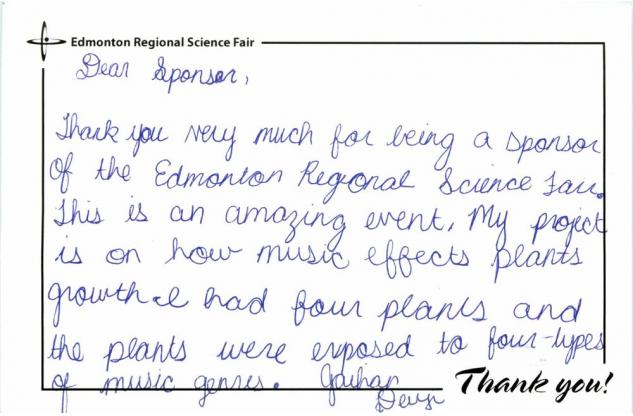 Edmonton Regional Science Fair
Dear Sponsor,
Thank you very much for being a sponsor
Of the Edmonton Regional Science Fair.
This is an amazing event. My project
is on how music effects plants
growth. I had four plants and
the plants were exposed to four-types
of music genres.
Thank you!